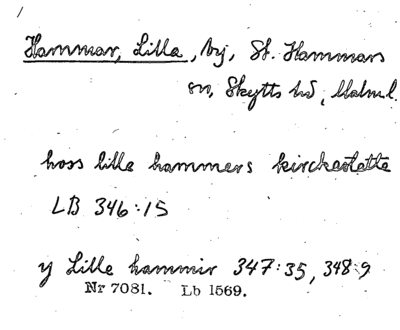 Hammar, Lilla, by, St. Hammars
sn, Skytts hd, Malm.l.
hoss lille hammers kirckestette
LB 346:15
y Lille hammir 347:35, 348:9
Nr 7081. Lb 1569.